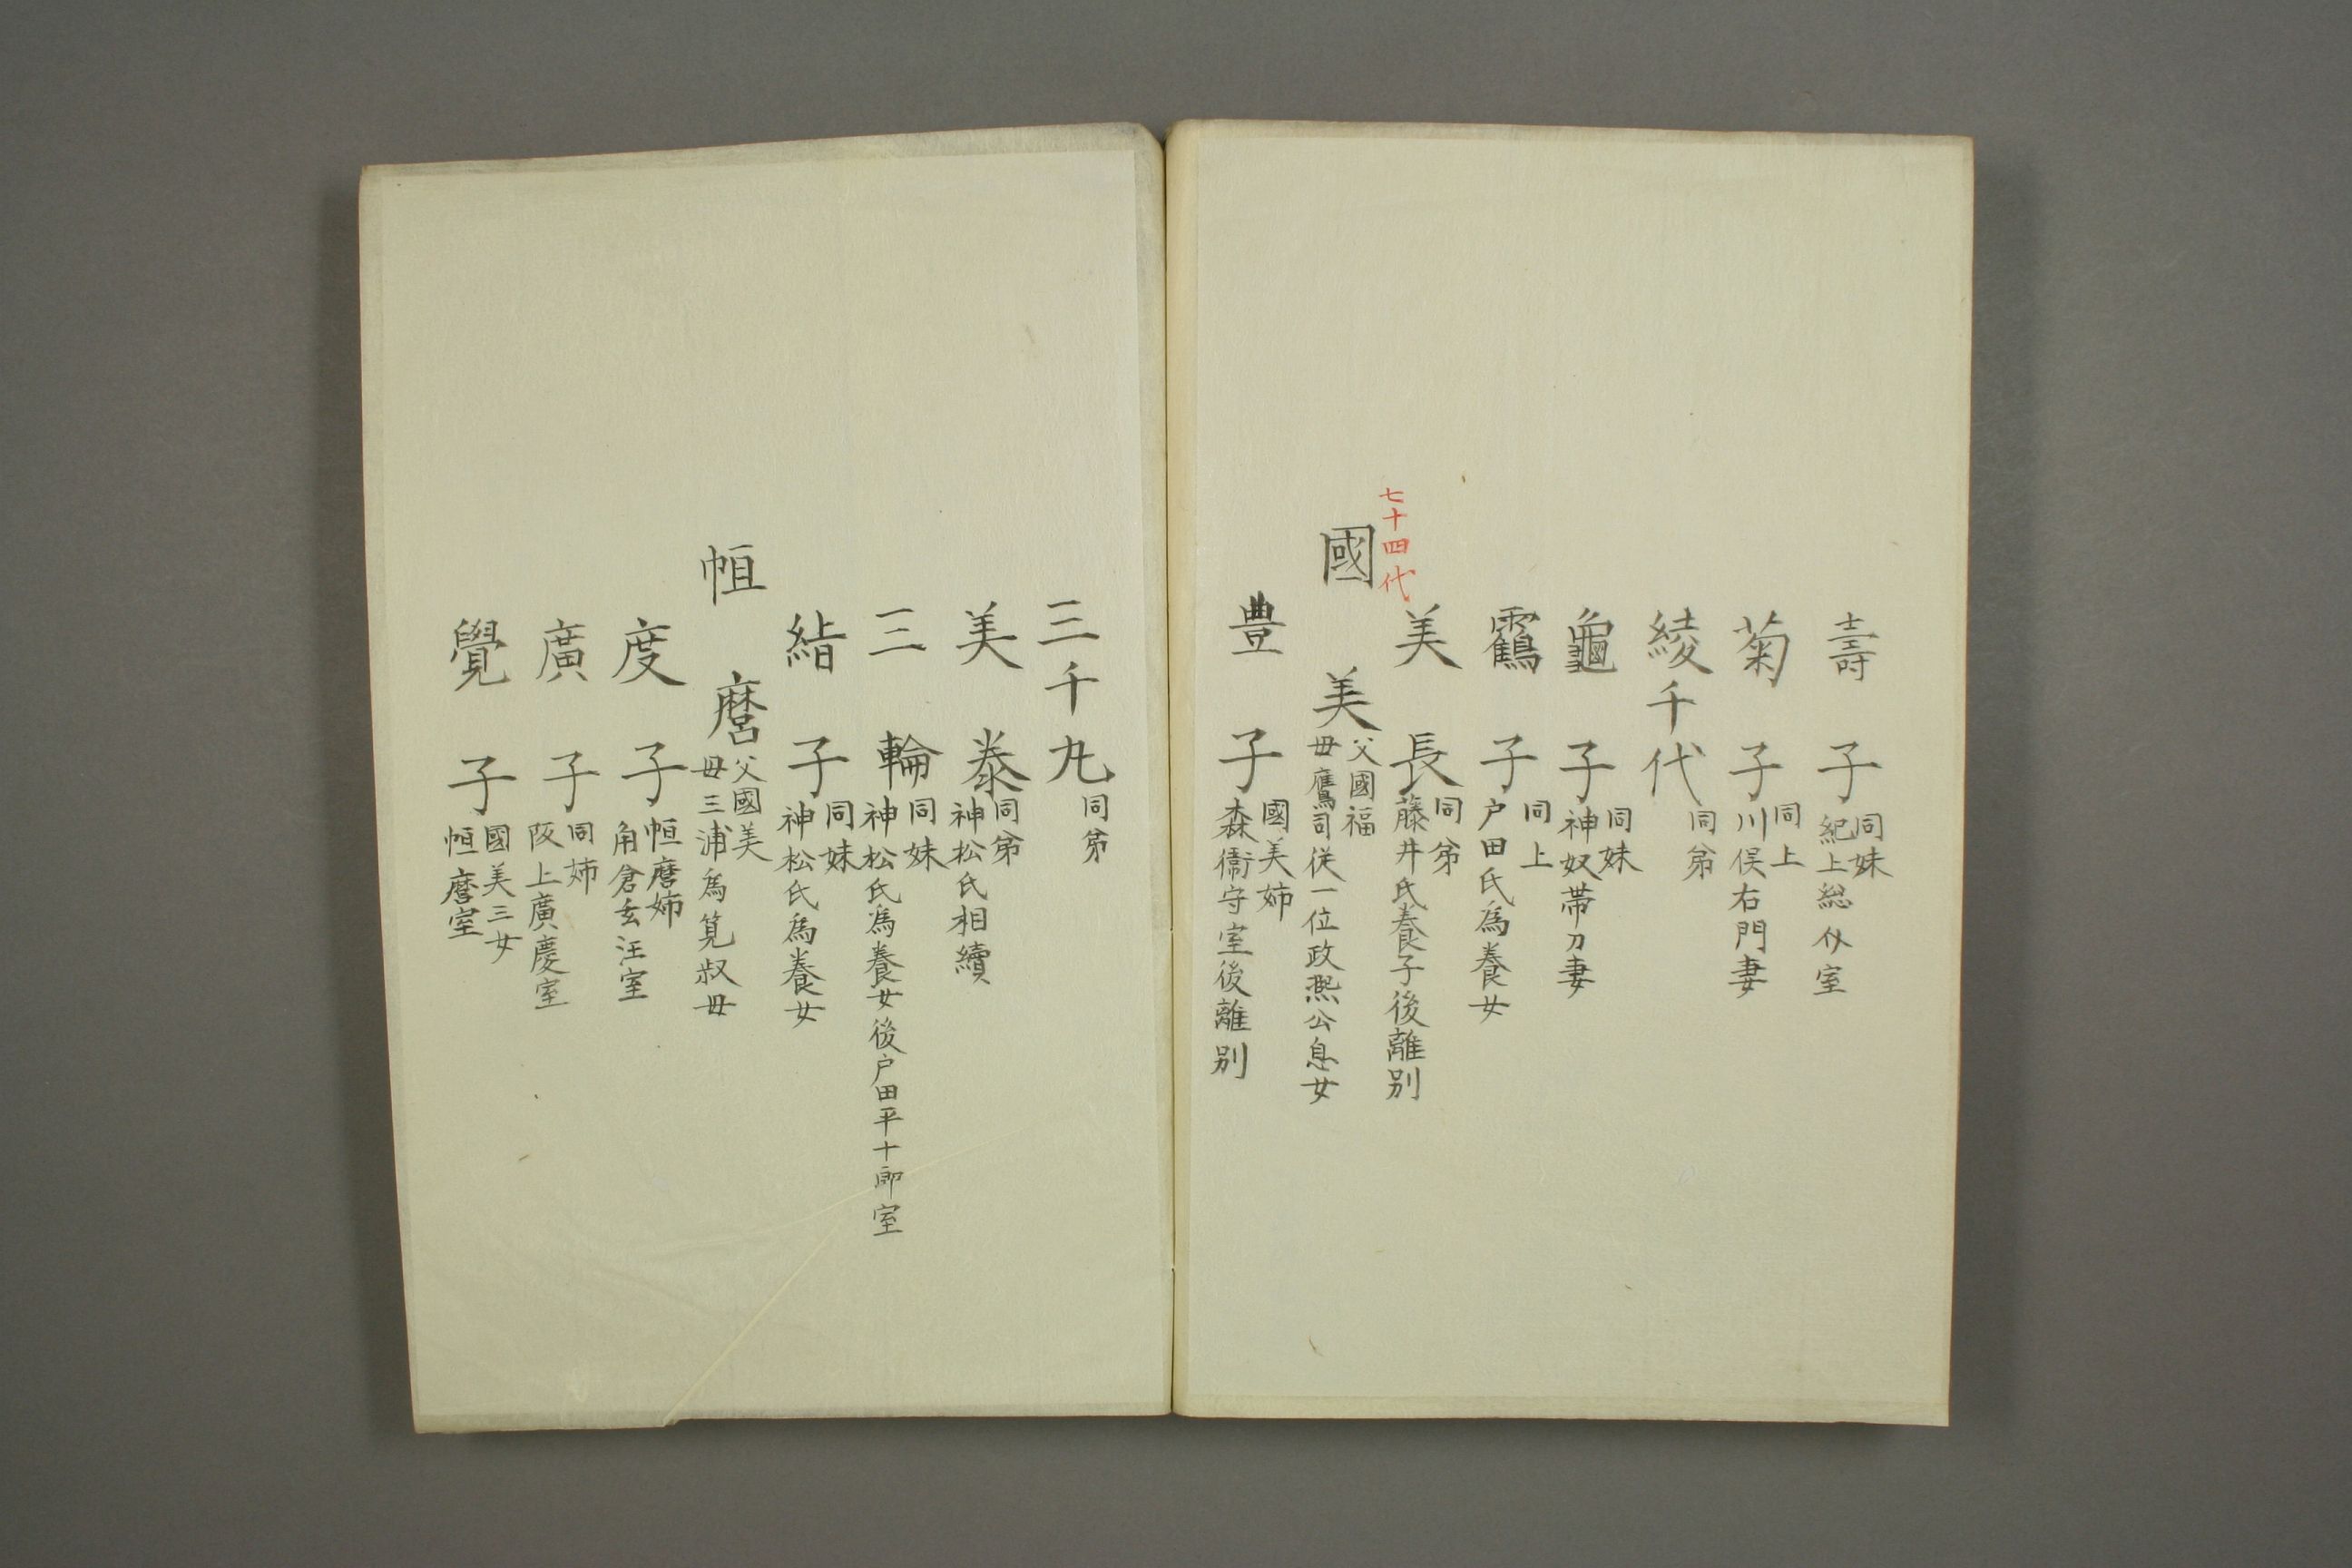 壽子 同妹
紀上総介室
菊子 同上
川俣右門妻
綾千代 同弟
龜子 同妹
神奴帯刀妻
靏子 同上
戸田氏爲養女
美長 同弟
藤井氏養子後離别
七十四代
國美 父國福
母鷹司従一位政熈公息女
豊子 國美姉
森衞守室後離别
三千丸 同弟
美泰 同弟
神松氏相續
三輪 同妹
神松氏爲養女後戸田平十郎室
緒子 同妹
神松氏爲養女
恒麿 父國美
母三浦爲筧叔母
度子 恒麿姉
角倉玄汪室
廣子 同姉
阪上廣慶室
覺子 國美三女
恒麿室